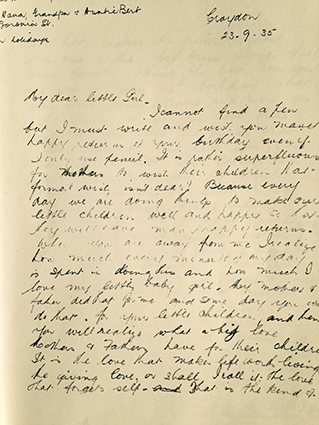 Nana, Grandpa & Auntie Bert
Boronia St.
holidays
Croydon
23-9-35
My dear little Girl -
I cannot find a pen
but I must write and wish you many
happy returns of your birthday even if
I only use pencil. It is rather superfluous
for Mothers to wish their children that
formal wish, isn't dear? Because every
day we are doing things to make our
little children well and happy so that
they will have many happy returns.
When you are away from me I realize
how much every minute of my day
is spent in doing this and how much I
love my little baby girl. My mother &
father did that for me and some day you will
do that for yours little children, and then
you will realize what a big love
Mothers & Fathers have for their children
It is the love that makes life worth living
the giving love, or shall I call it the love
that forgets self - That is the kind of